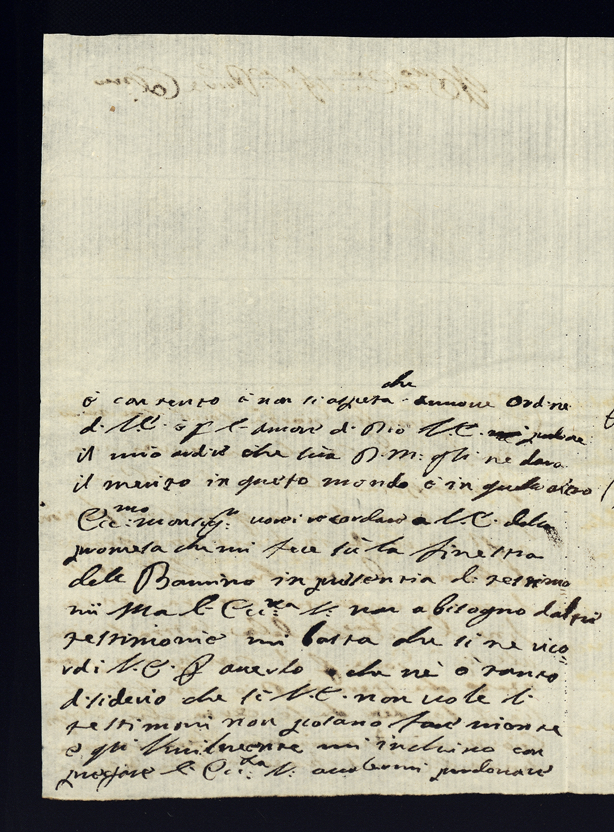 che
è contento e non si aspeta nuove Ordine
di V.E. e p l'Amore di Dio V.E. mi perdone
il mio ardire che sua D.M. gli ne dara
il merito in questo mondo e in quelo altro
Ecc:mo monsig:r vorei recordare a V.E. dela
promesa che mi fece sù la finestra
dele Bamino in presentia di testimo
nii Ma l'Ecc:za V: non a bisogno daltri
testimonie mi basta che si ne rico
rdi V.E. P averlo che nè ò tanto
disiderio che se V.E. non vole li
testimoni non posano fare niente
e qui Umilmente mi inchino con
pregare l'Ecc:za V: avolermi perdonare